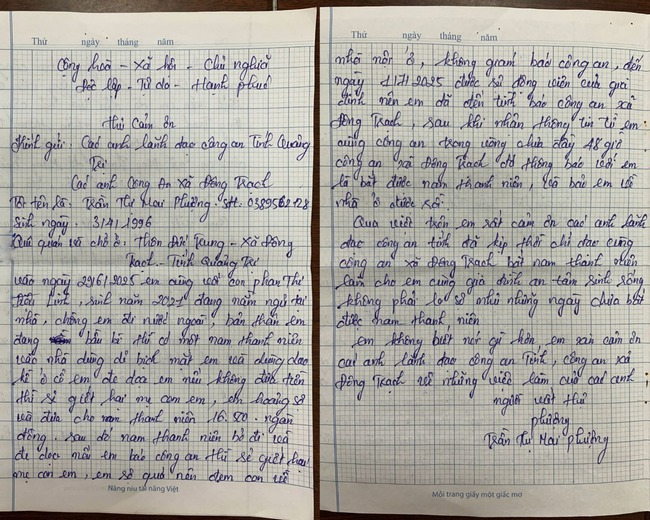 Thứ ngày tháng năm
Cộng hoà - Xã hội - Chủ nghĩa
Độc lập - Tự do - Hạnh phúc
Thư Cảm ơn
Kính gửi: Các anh lãnh đạo công an Tỉnh Quảng
Trị
Các anh Công An Xã Đông Trạch
Tôi tên là: Trần Thị Mai Phương. SĐT:
Sinh ngày: 3/4/1996
Quê quán và chỗ ở: Thôn Đức Trung - Xã Đông
Trạch - Tỉnh Quảng Trị
vào ngày 29/6/2025 em cùng với con phan Thị
Linh, sinh năm 2021 đang nằm ngủ tại
nhà, chồng em đi nước ngoài, bản thân em
đang bầu bì thì có một nam thanh niên
vào nhà dùng đồ bịch mặt em và dùng dao
kề ở cổ em, đe doạ em nếu không đưa tiền
thì sẽ giết hai mẹ con em, em hoảng sợ
và đưa cho nam thanh niên ngàn
đồng. sau đó nam thanh niên bỏ đi và
đe doạ nếu em báo công an thì sẽ giết hai
mẹ con em, em sợ quá nên đem con về
Nâng niu tài năng Việt
Thứ ngày tháng năm
nhà nội ở, không giám báo công an, đến
ngày 1/7/2025 được sự động viên của gia
đình nên em đã đến trình báo công an xã
Đông Trạch, sau khi nhận thông tin từ em
cùng công an trong vòng chưa đầy 48 giờ
công an xã Đông Trạch đã thông báo với em
là bắt được nam thanh niên, và bảo em về
nhà ở được rồi.
Qua việc trên em rất cảm ơn các anh lãnh
đạo công an tỉnh đã kịp thời chỉ đạo cùng
công an xã Đông Trạch bắt nam thanh niên
làm cho em cùng gia đình an tâm sinh sống
không phải lo sợ như những ngày chưa bắt
được nam thanh niên
em không biết nói gì hơn, em xin cảm ơn
các anh lãnh đạo công an Tỉnh, công an xã
Đông Trạch về những việc làm của các anh
người viết thư
phương
Trần Thị Mai Phương
Mỗi trang giấy một giấc mơ